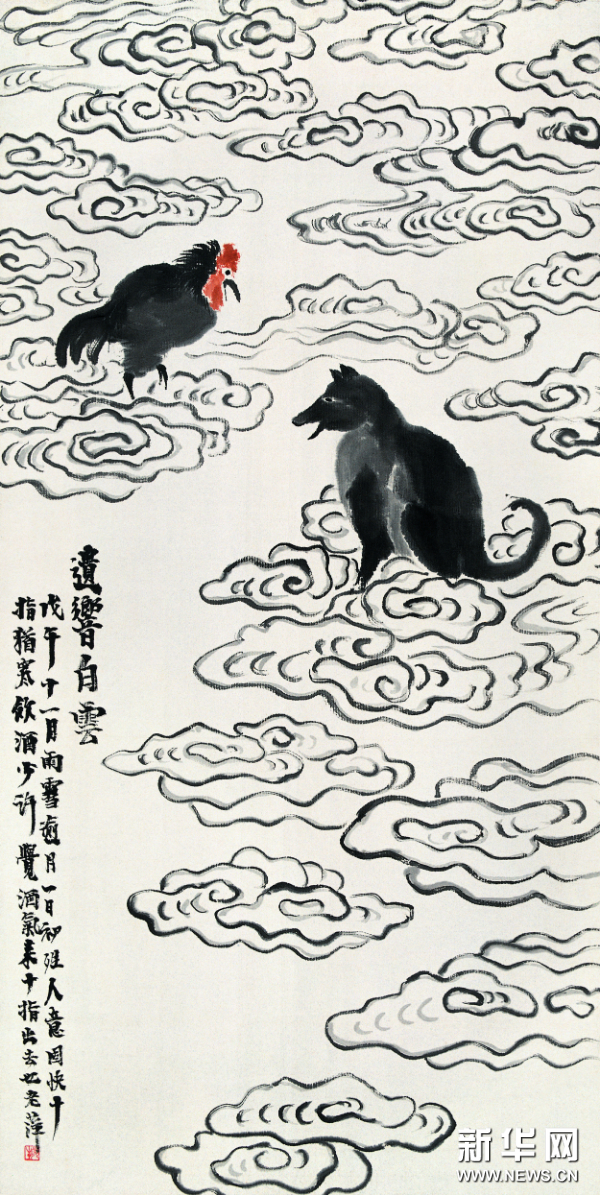 遺響白雲
戊午十一月雨雪逾月一日初人意固快十
指猶寒飲酒少許覺酒氣十指出去也老萍
新华网
WWW.NEWS.CN